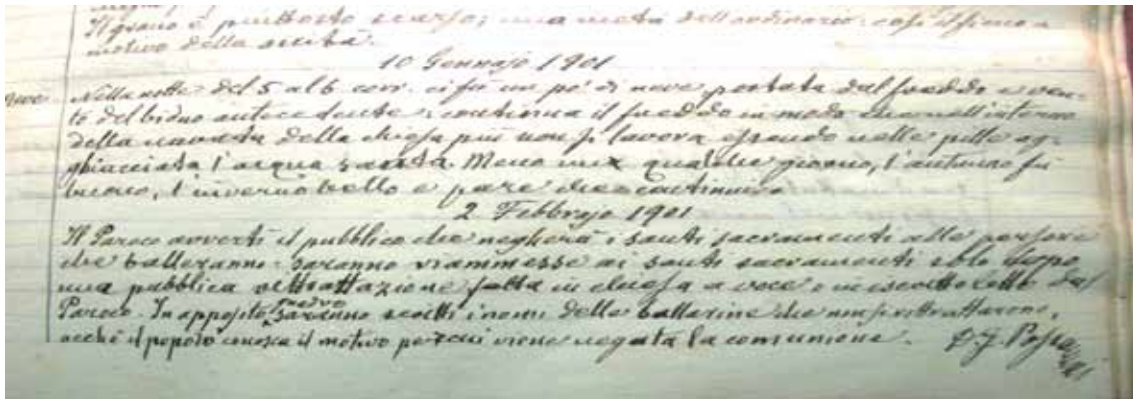 Il grano è piuttosto scarso; una metà dell'ordinario: così il fieno a
motivo della siccità.
10 Gennajo 1901
Neve
Nella notte del 5 al 6 corr. ci fu un po' di neve portata dal freddo e ven-
to del biduo antecedente: continua il freddo in modo che nell'interno
della navata della chiesa più non si lavora essendo nelle pille ag-
ghiacciata l'acqua santa. Meno qualche giorno, l'autunno fu
buono, l'inverno bello e pare che continui.
2 Febbrajo 1901
Il Paroco avvertì il pubblico che negherà i santi sacramenti alle persone
che balleranno: saranno riammesse ai santi sacramenti solo dopo
una pubblica rettrattazione fatta in chiesa a voce o in iscritto letto dal
Paroco. In apposito quadro saranno scritti i nomi delle ballarine che non si rittrattarono,
acchè il popolo conosca il motivo per cui viene negata la comunione.